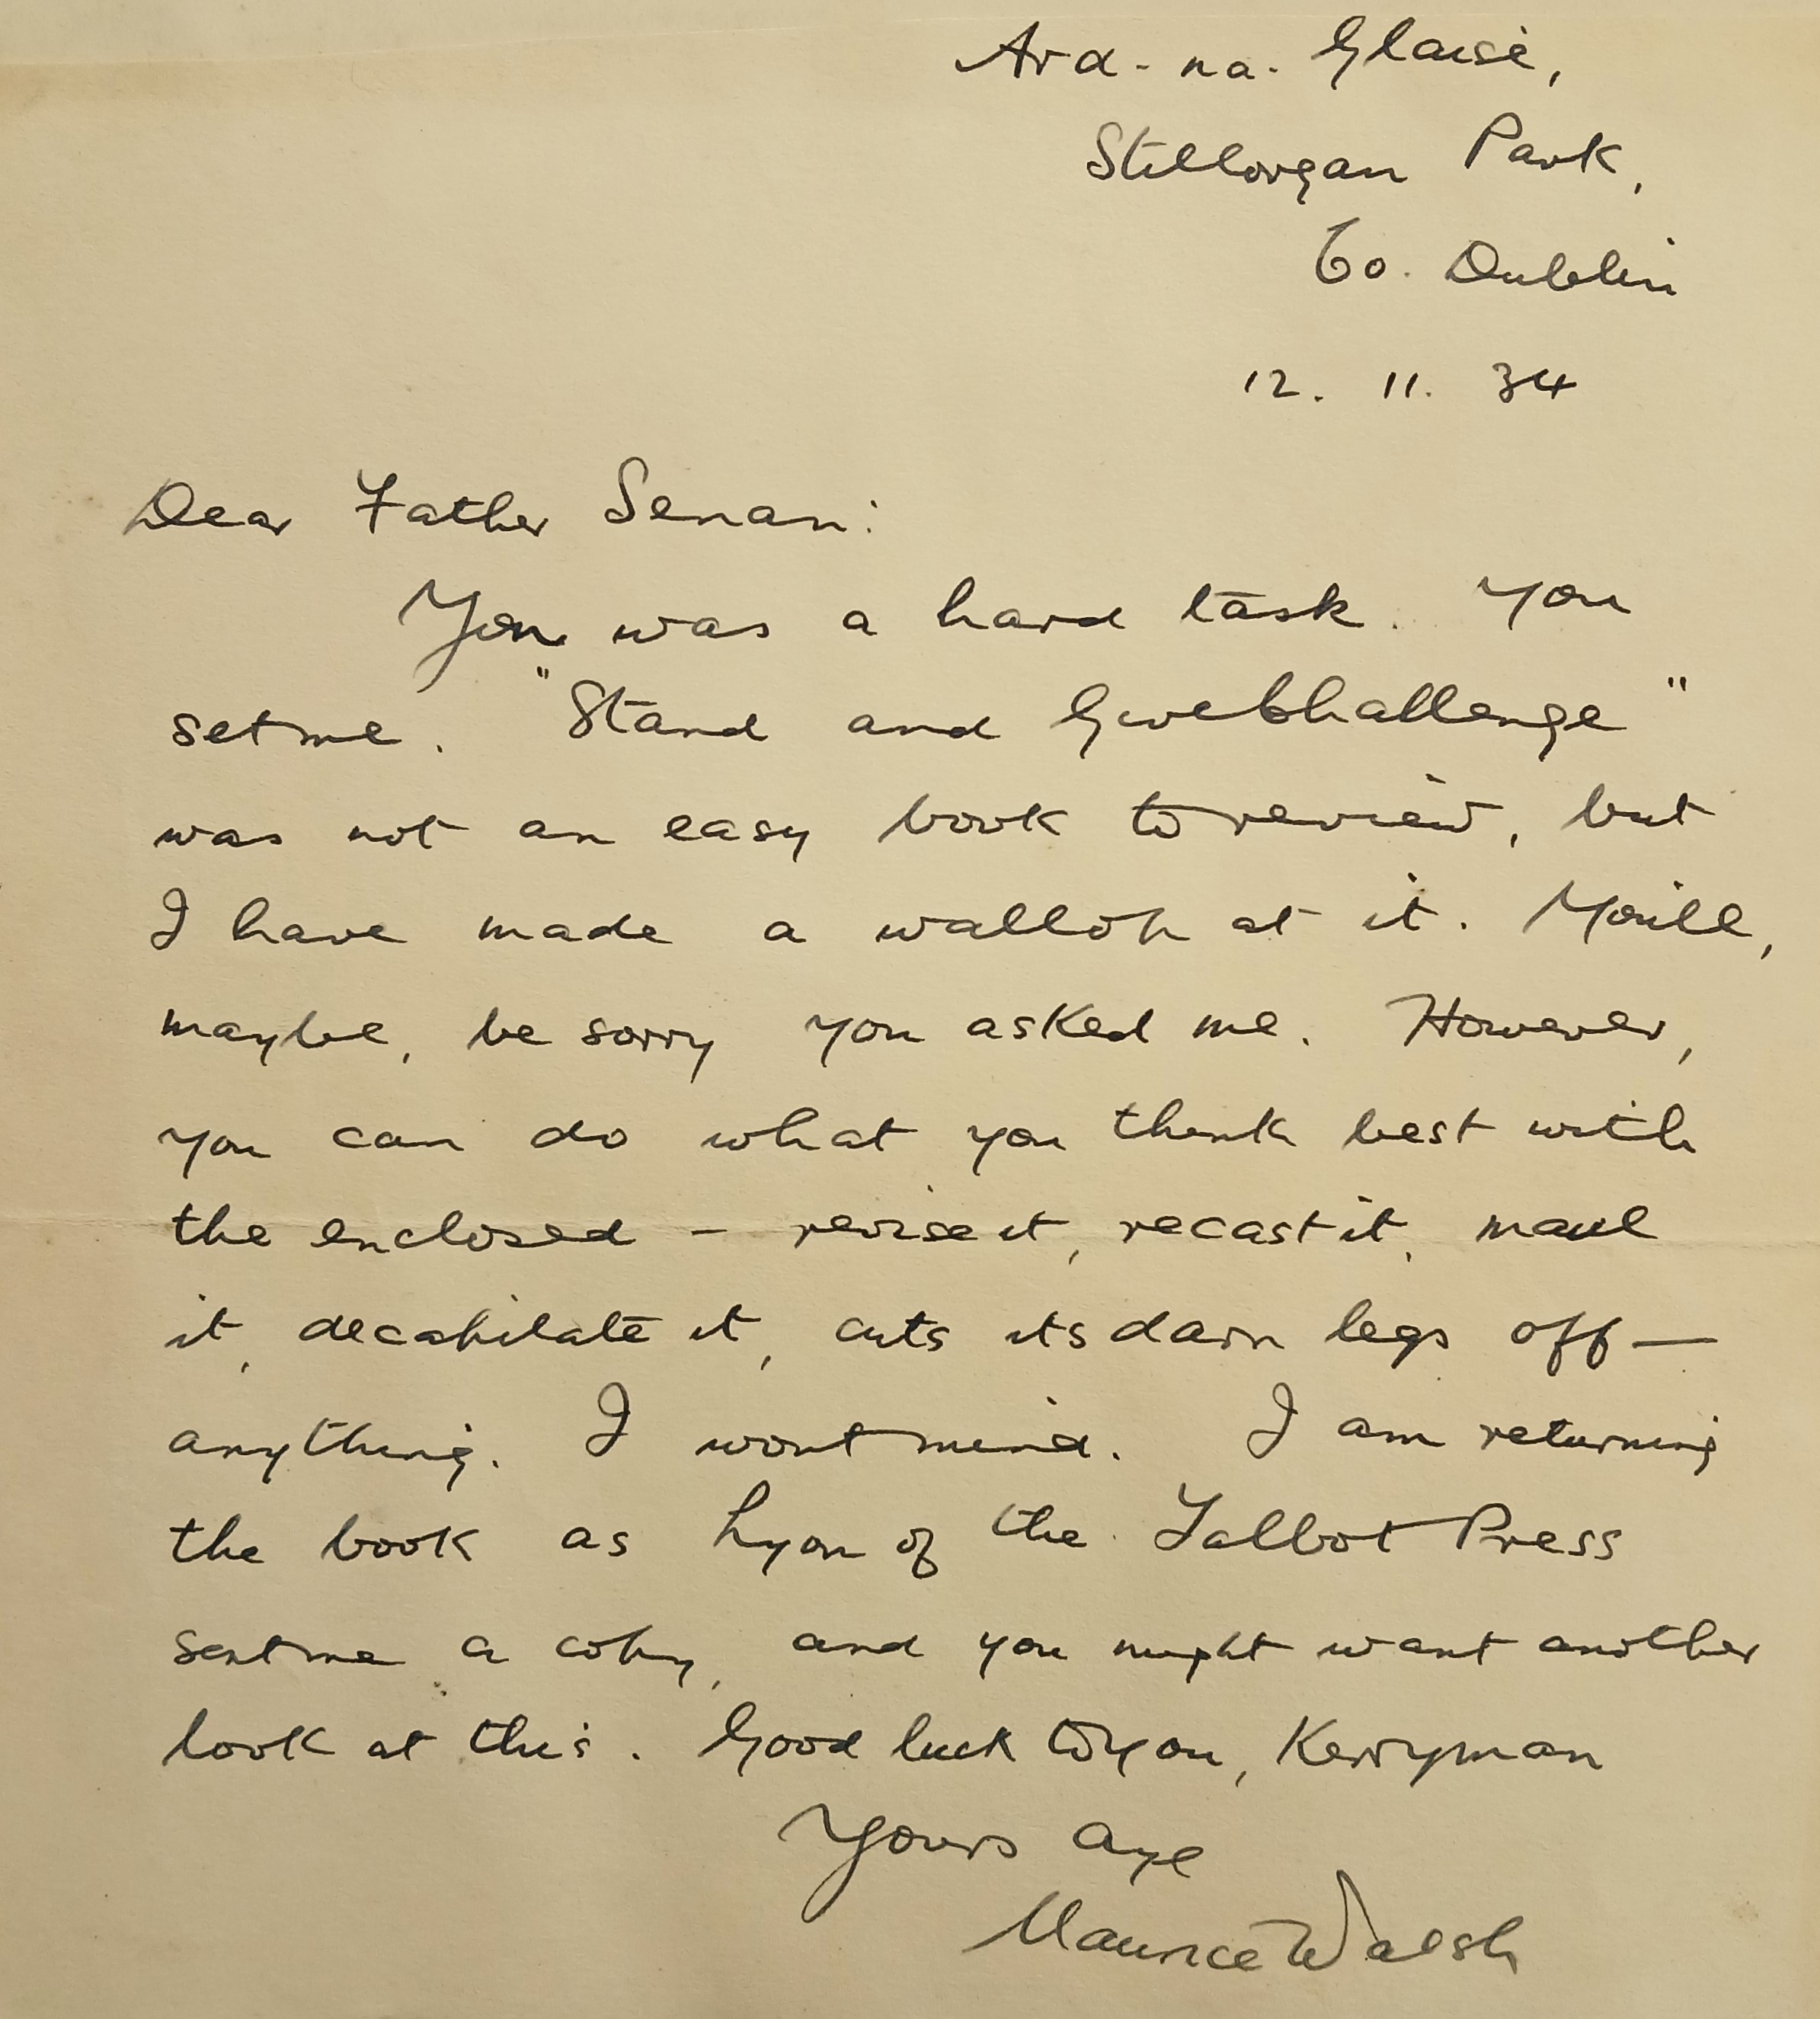 Ard-na-Glaise,
Stillorgan Park,
Co. Dublin
12. 11. 34
Dear Father Senan:
Yon was a hard task. You
set me. "Stand and Give Challenge"
was not an easy book to review, but
I have made a wallop at it. You'll,
maybe, be sorry you asked me. However,
you can do what you think best with
the enclosed – revise it, recast it, maul
it, decapitate it, cuts its darn legs off—
anything. I wont mind. I am returning
the book as Lyon of the Talbot Press
sent me a copy, and you might want another
look at this. Good luck to you, Kerryman
Yours aye
Maurice Walsh